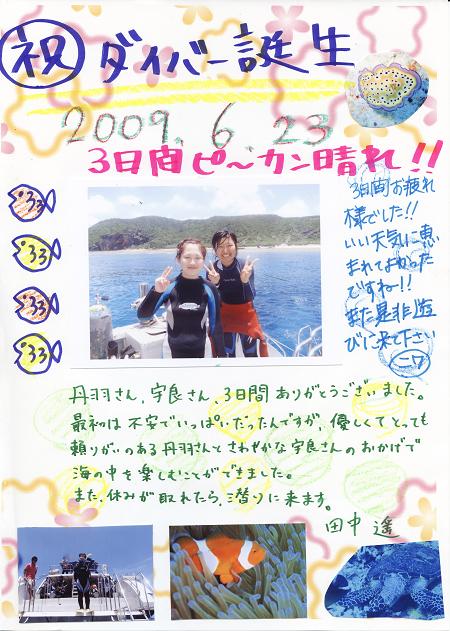 祝 ダイバー誕生
2009.6.23
3日間ピ〜カン晴れ!!
33
33
33
33
3日間お疲れ
様でした!!
いい天気に恵
まれてよかった
ですね〜!!
また是非遊
びに来て下さい
ニワ
丹羽さん、宇良さん、3日間ありがとうございました。
最初は不安でいっぱいだったんですが、優しくてとっても
頼りがいのある丹羽さんとさわやかな宇良さんのおかげで
海の中を楽しむことができました。
また、休みが取れたら、潜りに来ます。
田中 遥